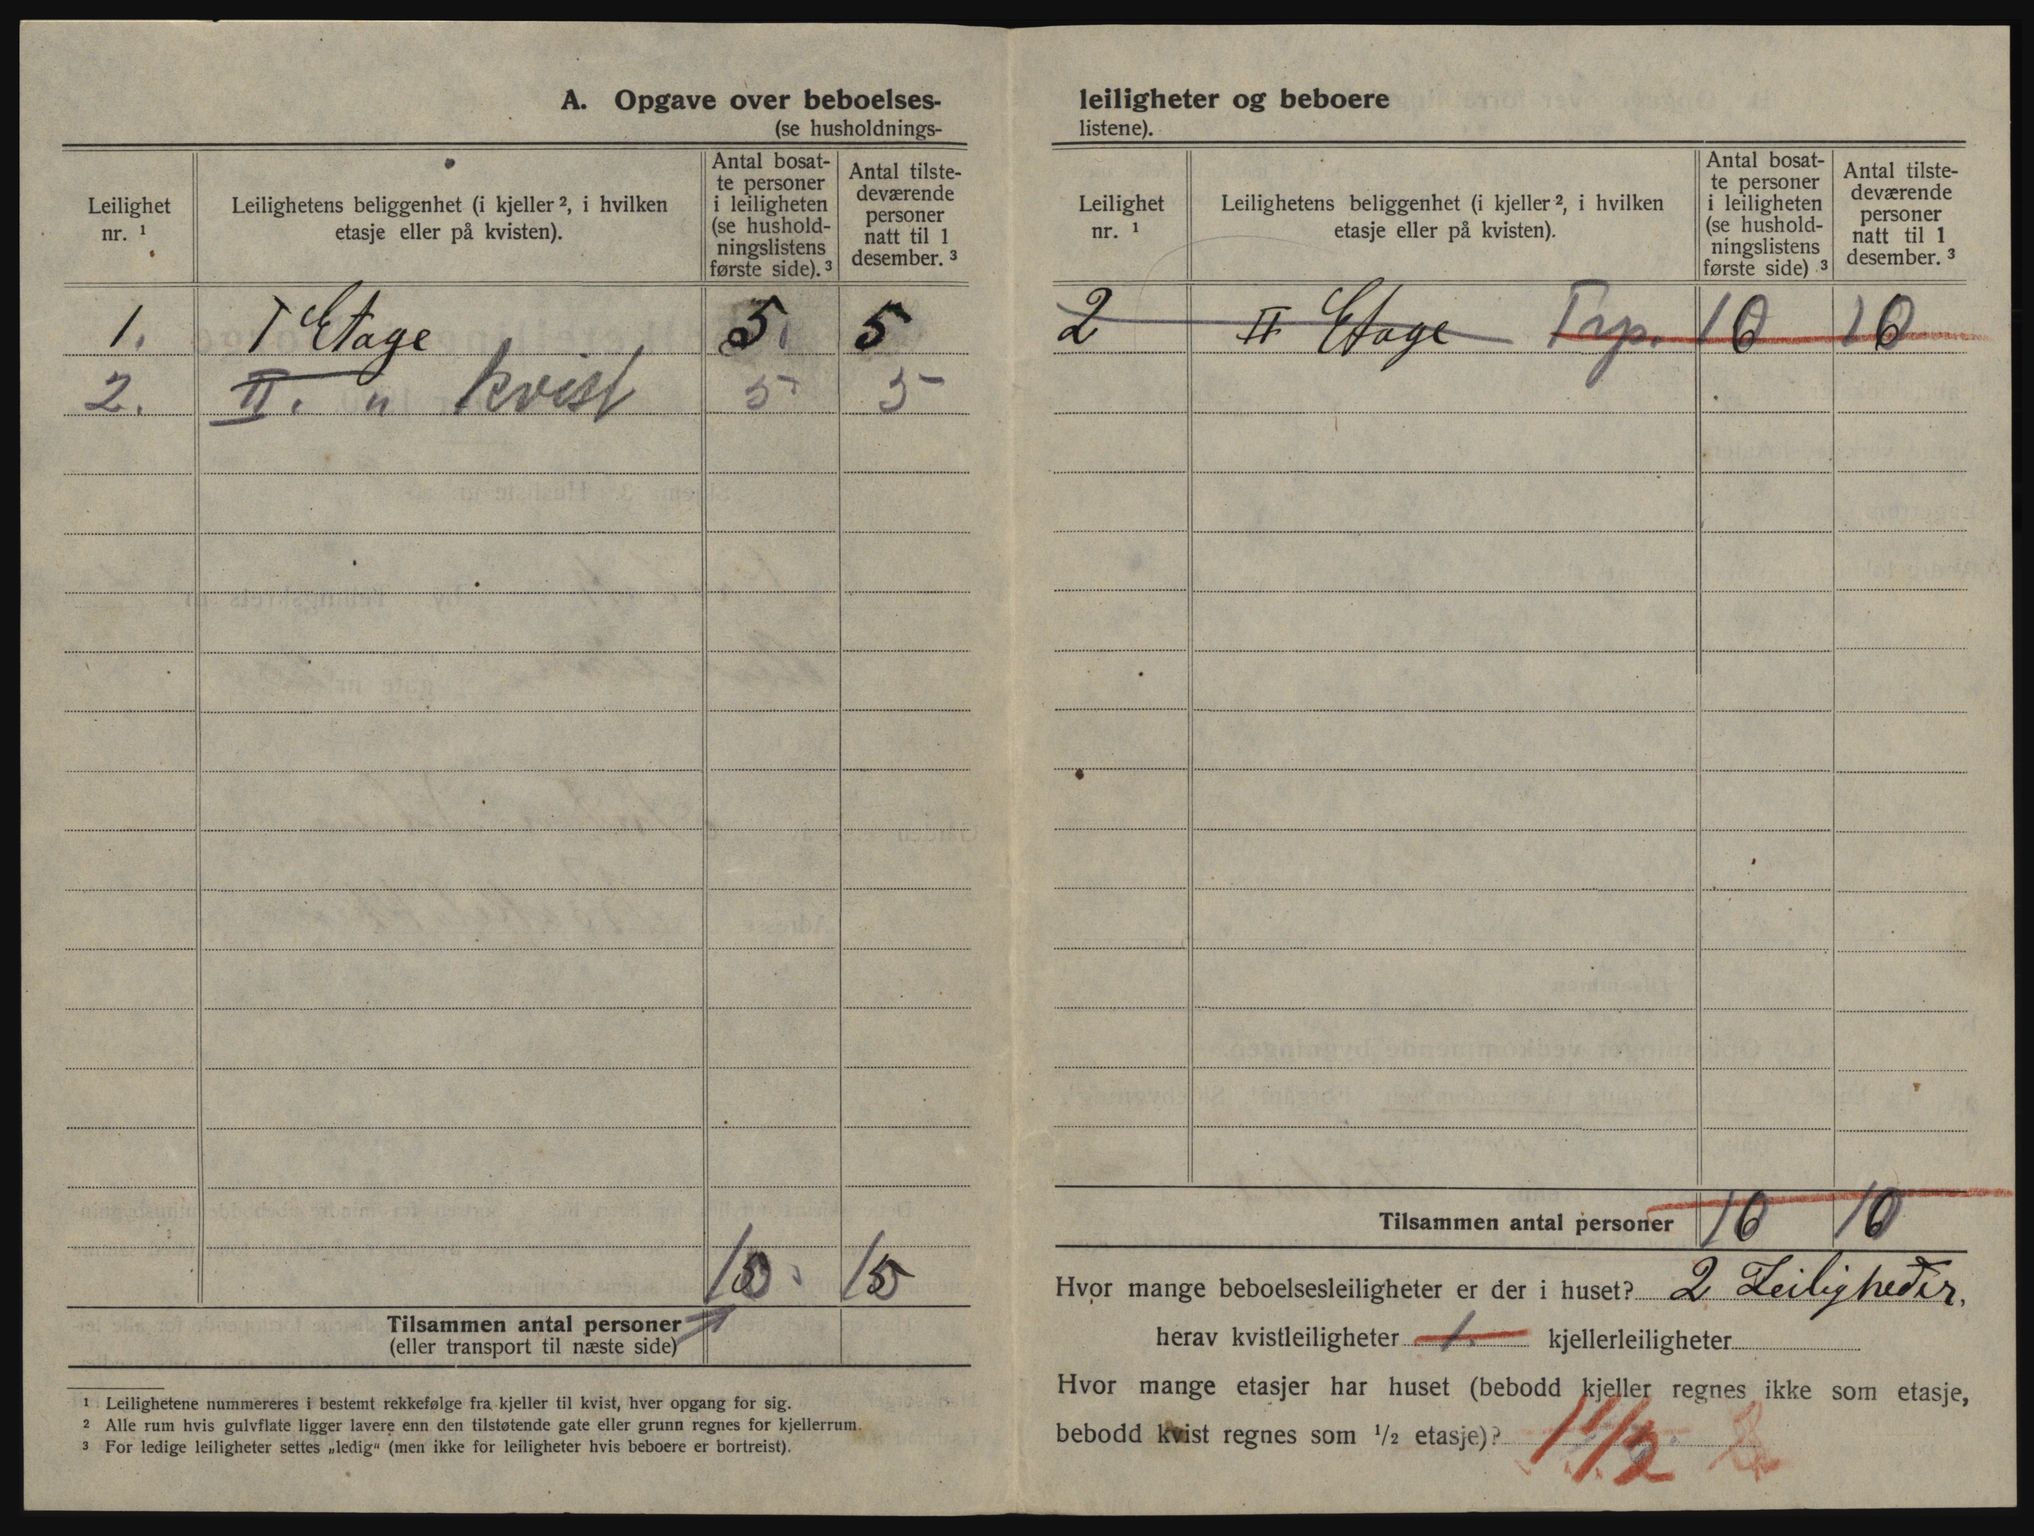 A. Opgave over beboelses-
(se husholdnings-
Leilighet nr. ¹
Leilighetens beliggenhet (i kjeller ², i hvilken etasje eller på kvisten).
Antal bosat-
te personer
i leiligheten
(se hushold-
ningslistens
første side). ³
Antal tilste-
deværende
personer
natt til 1
desember. ³
1. I Etage 5. 5
2. II. " kvist 5 5
10 10
Tilsammen antal personer
(eller transport til næste side)
¹ Leilighetene nummereres i bestemt rekkefølge fra kjeller til kvist, hver opgang for sig.
² Alle rum hvis gulvflate ligger lavere enn den tilstøtende gate eller grunn regnes for kjellerrum.
³ For ledige leiligheter settes „ledig“ (men ikke for leiligheter hvis beboere er bortreist).
leiligheter og beboere
listene).
Leilighet nr. ¹
Leilighetens beliggenhet (i kjeller ², i hvilken etasje eller på kvisten).
Antal bosat-
te personer
i leiligheten
(se hushold-
ningslistens
første side) ³
Antal tilste-
deværende
personer
natt til 1
desember. ³
2 II Etage Trp. 10 10
Tilsammen antal personer 10 10
Hvor mange beboelsesleiligheter er der i huset? 2 Leiligheder.
herav kvistleiligheter 1. kjellerleiligheter
Hvor mange etasjer har huset (bebodd kjeller regnes ikke som etasje,
bebodd kvist regnes som ½ etasje)? 1 1/2